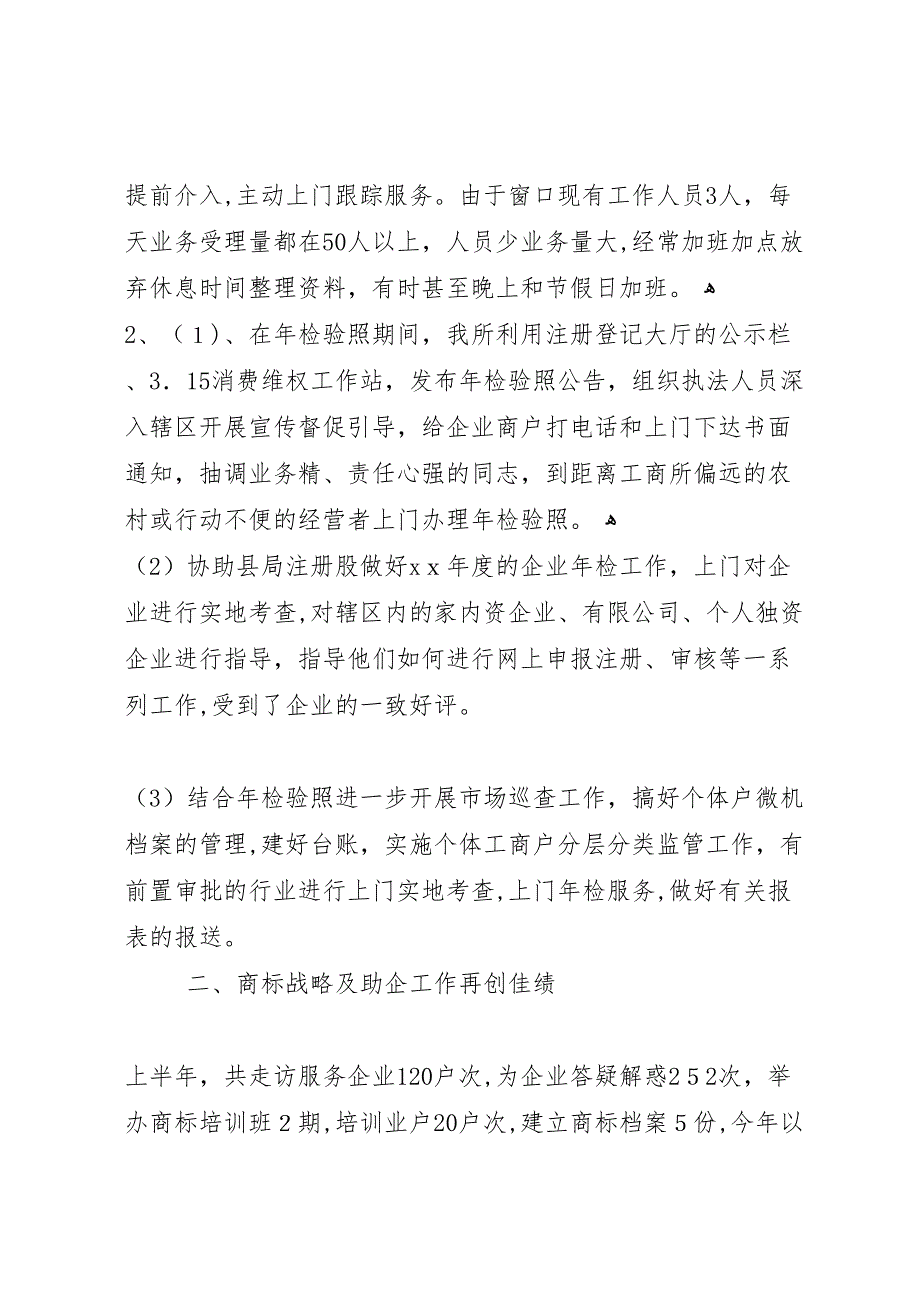 提前介入,主动上门跟踪服务。由于窗口现有工作人员3人，每
天业务受理量都在50人以上，人员少业务量大,经常加班加点放
弃休息时间整理资料，有时甚至晚上和节假日加班。 ﻫ
2、（１)、在年检验照期间，我所利用注册登记大厅的公示栏
、3．15消费维权工作站，发布年检验照公告，组织执法人员深
入辖区开展宣传督促引导，给企业商户打电话和上门下达书面
通知，抽调业务精、责任心强的同志，到距离工商所偏远的农
村或行动不便的经营者上门办理年检验照。 ﻫ
（2）协助县局注册股做好xｘ年度的企业年检工作，上门对企
业进行实地考查,对辖区内的家内资企业、有限公司、个人独资
企业进行指导，指导他们如何进行网上申报注册、审核等一系
列工作,受到了企业的一致好评。
（3）结合年检验照进一步开展市场巡查工作，搞好个体户微机
档案的管理,建好台账，实施个体工商户分层分类监管工作，有
前置审批的行业进行上门实地考查,上门年检服务,做好有关报
表的报送。
二、商标战略及助企工作再创佳绩
上半年，共走访服务企业120户次,为企业答疑解惑2５2次，举
办商标培训班２期,培训业户20户次,建立商标档案５份,今年以